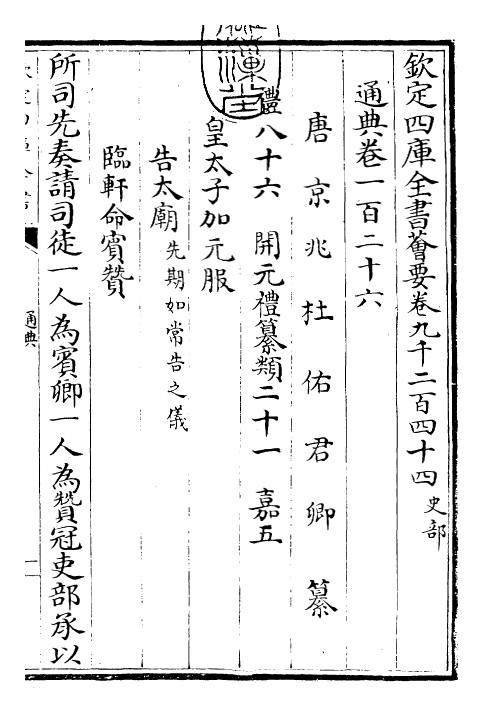 欽定四庫全書薈要卷九千二百四十四 史部
通典卷一百二十六
唐京兆杜佑君卿纂
禮八十六 開元禮纂類二十一 嘉五
皇太子加元服
告太廟 先期如常告之儀
臨軒命賓贊
所司先奏請司徒一人為賓卿一人為贊冠吏部承以
通典
一